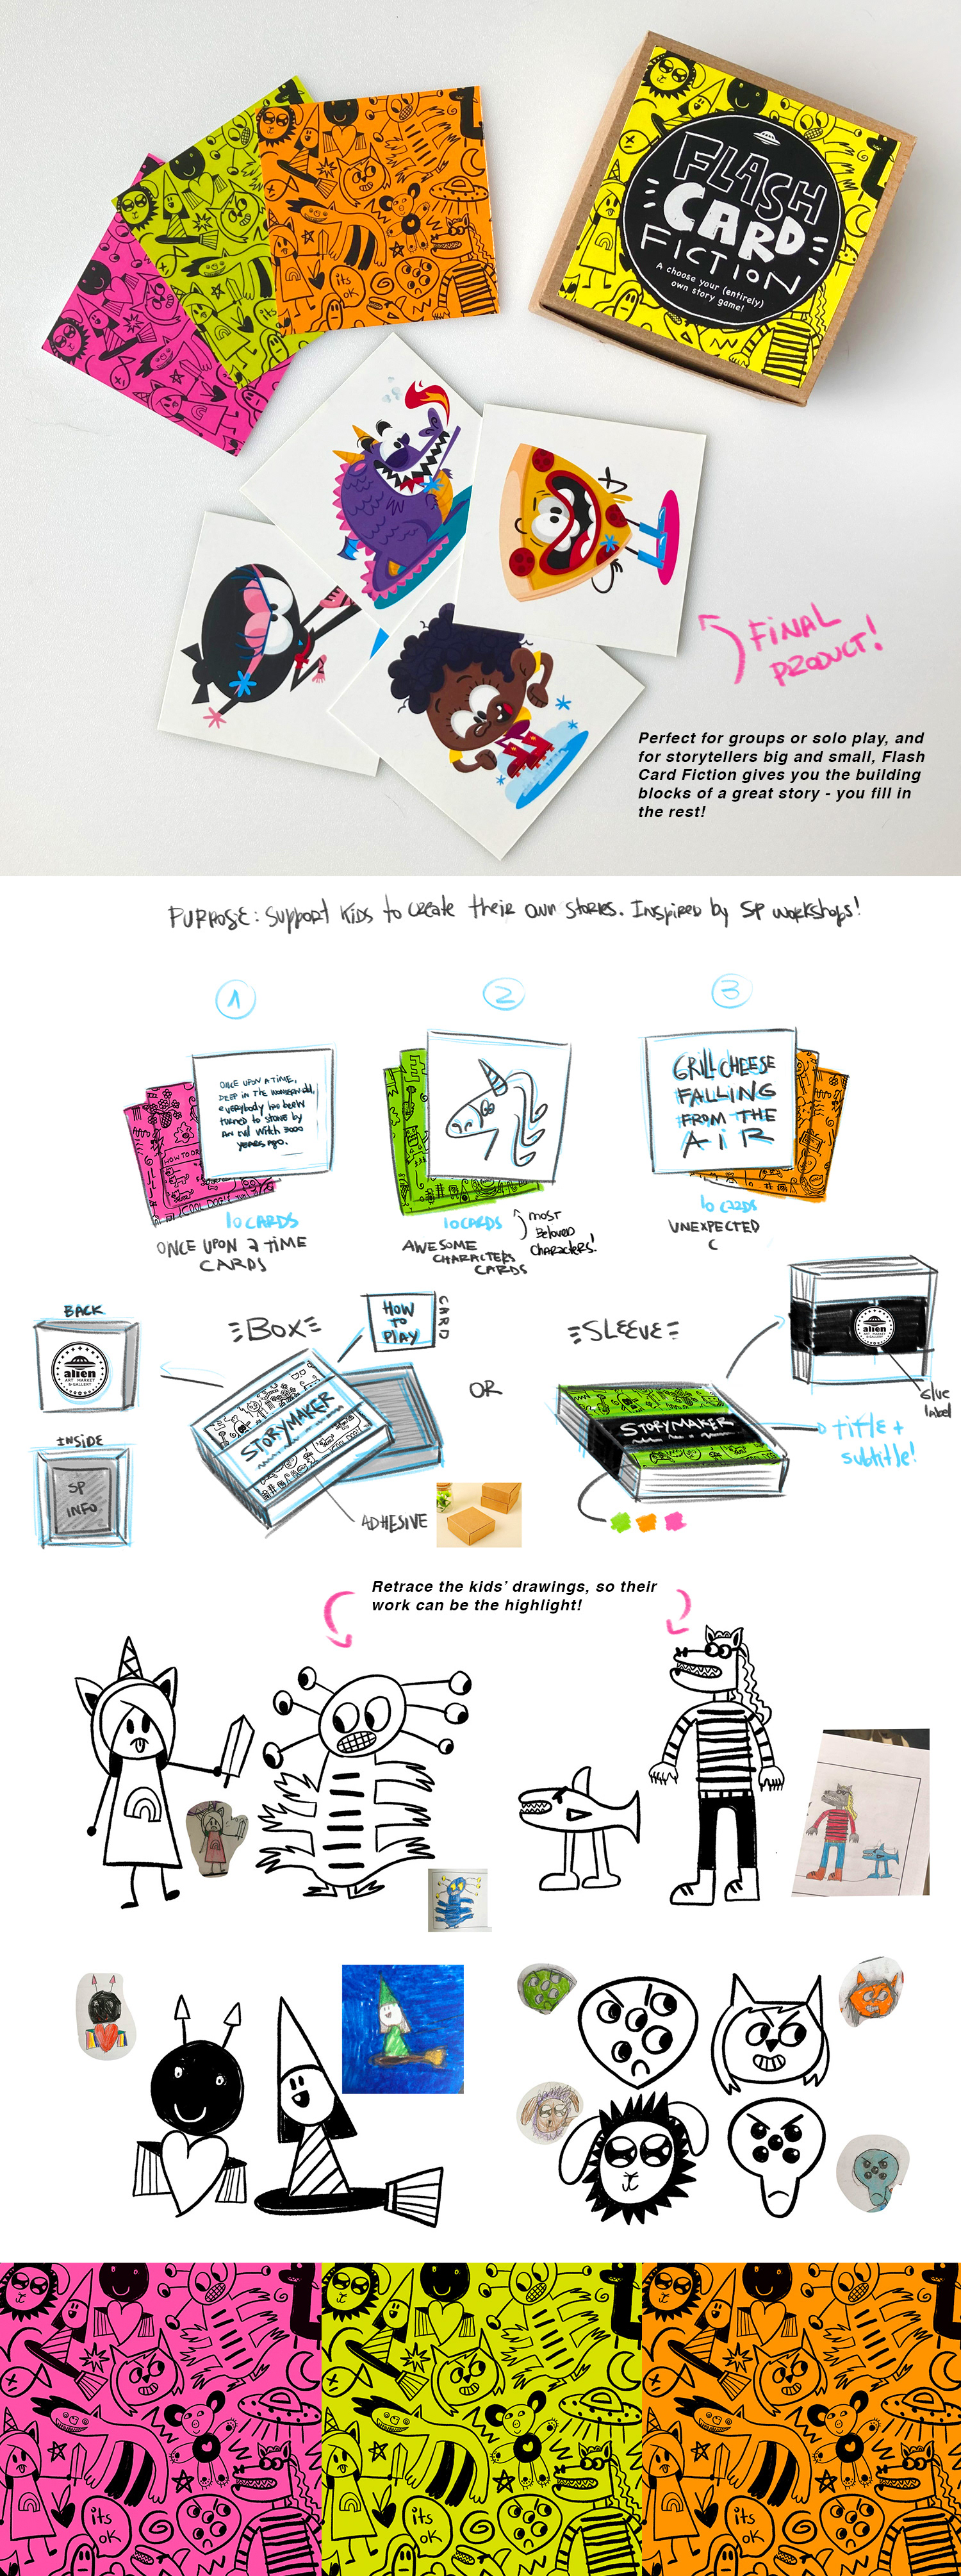 FLASH
CARD
FICTION
A choose your (entirely)
own story game!
its
OK
FINAL
PRODUCT!
Perfect for groups or solo play, and
for storytellers big and small, Flash
Card Fiction gives you the building
blocks of a great story - you fill in
the rest!
PURPOSE: Support Kids to create their own stories. Inspired by SP workshops!
1
2
3
ONCE UPON A TIME,
DEEP IN THE
everybody has been
turned to stone by
AN evil witch 3000
years ago.
GRILL CHEESE
FALLING
FROM THE
AiR
HOW TO DR
COOL
10 CARDS
ONCE UPON A TIME
CARDS
10 CARDS
AWESOME
CHARACTERS
CARDS
MOST
Beloved
Characters!
10 CARDS
UNEXPECTED
C
BACK
alien
ART MARKET
& GALLERY
INSIDE
SP
INFO
BOX
HOW
TO
PLAY
CARD
STORYMAKER
ADHESIVE
OR
SLEEVE
STORYMAKER
alien
ART MARKET
& GALLERY
Glue
label
title +
subtitle!
Retrace the kids' drawings, so their
work can be the highlight!
its
OK
its
OK
its
OK